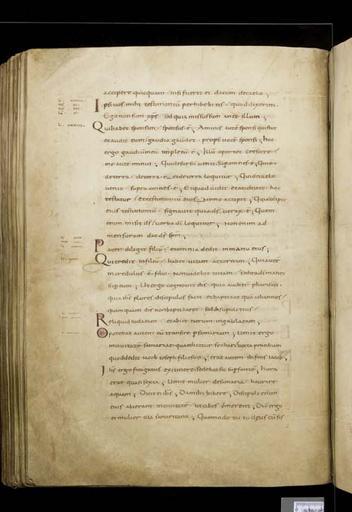 accipere quicquam nisi fuerit ei datum de caelo
Ipsi uos mihi testimonium perhibetis quod dixerim
Ego non sum xps sed quia missus sum ante illum
Qui habet sponsam sponsus est Amicus autem sponsi qui stat
et audit eum gaudio gaudet propter uocem sponsi hoc
ergo gaudium meum impletum est Illum oportet crescere
me autem minui Qui desursum uenit supra omnes est Qui est
de terra de terra est et de terra loquitur Qui de caelo
uenit supra omnes est Et quod uidit et audiuit hoc
testatur et testimonium eius nemo accipit Qui accipit
eius testimonium signauit quia ds uerax est Quem
enim misit ds uerba di loquitur Non enim ad
mensuram dat ds spm
Pater diligit filium et omnia dedit in manu eius
Qui credit in filium habet uitam aeternam Qui autem
incredulus est filio non uidebit uitam sed ira di manet
super eum Ut ergo cognouit ihs quia audierunt pharisei
quia ihs plures discipulos facit et baptizat quam iohannes
quamquam ihs non baptizaret sed discipuli eius
Reliquit iudaeam et abiit iterum in galilaeam
Oportebat autem eum transire per samariam Uenit ergo
in ciuitatem samariae quae dicitur sychar iuxta praedium
quod dedit iacob ioseph filio suo erat autem ibi fons iacob
Ihs ergo fatigatus ex itinere sedebat sic super fontem hora
erat quasi sexta Uenit mulier de samaria haurire
aquam Dicit ei ihs Da mihi bibere Discipuli enim
eius abierant in ciuitatem ut cibos emerent Dicit ergo
ei mulier illa samaritana Quomodo tu iudaeus cum sis